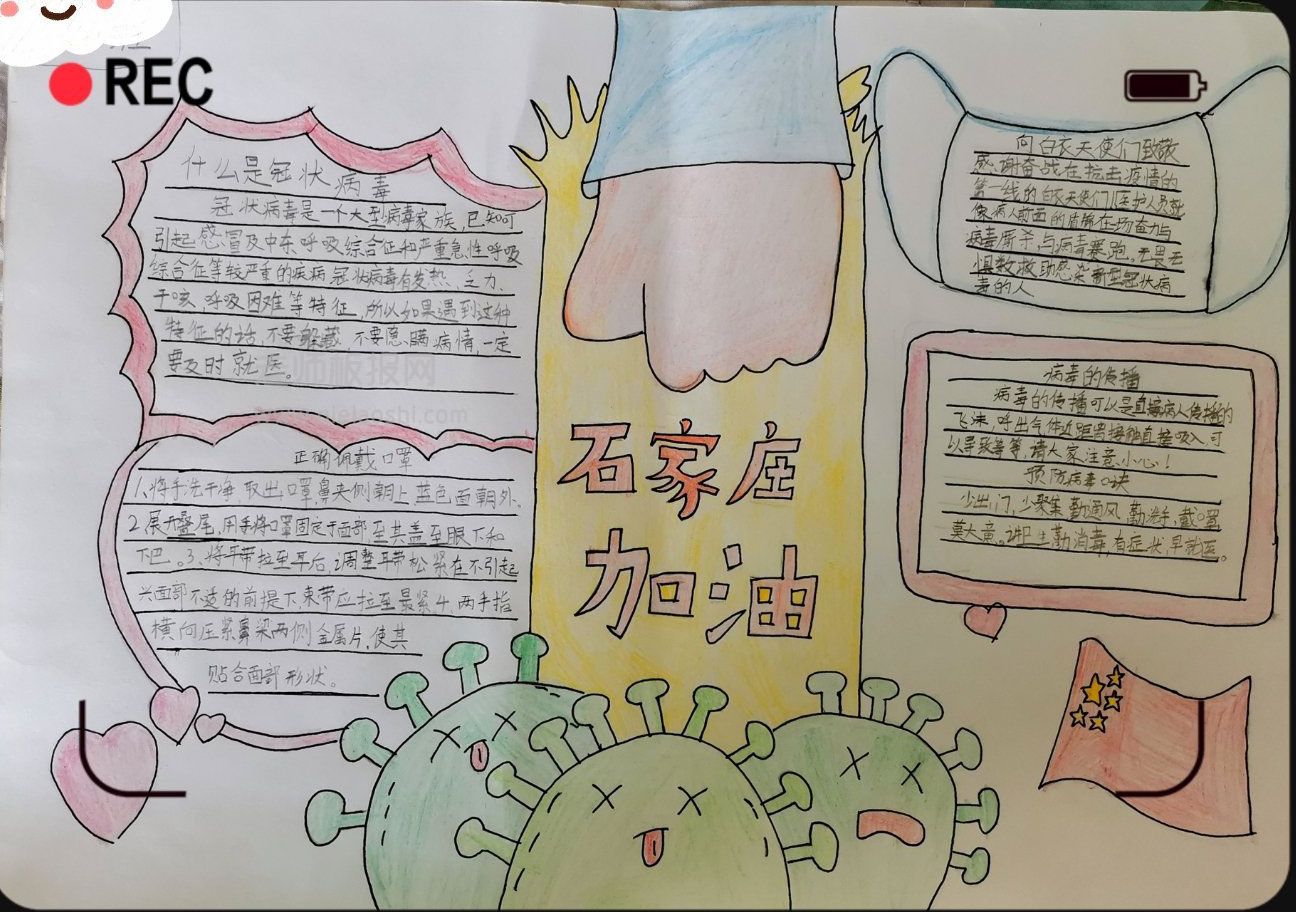 REC
什么是冠状病毒
冠状病毒是一个大型病毒家族,已知可
引起感冒及中东呼吸综合征和严重急性呼吸
综合征等较严重的疾病.冠状病毒有发热、乏力、
干咳、呼吸困难等特征,所以如果遇到这种
特征的话,不要躲藏,不要隐瞒病情,一定
要及时就医。
正确佩戴口罩
1、将手洗干净,取出口罩,鼻夹侧朝上,蓝色面朝外.
2展开叠尾,用手将口罩固定于面部至其盖至眼下和
下巴。3、将耳带拉至耳后,调整耳带松紧在不引起
面部不适的前提下束带应拉至最紧4、两手指
横向压紧鼻梁两侧金属片,使其
贴合面部形状。
石家庄
加油
向白衣天使们致敬
感谢奋战在抗击疫情的
第一线的白衣天使们!医护人员就
像病人前面的盾牌在场奋力与
病毒厮杀,与病毒赛跑.无畏无
惧救助感染新型冠状病
毒的人
病毒的传播
病毒的传播可以是直接病人传播的
飞沫,呼出气体近距离接触直接吸入,可
以导致等等,请大家注意,小心!
预防病毒口诀
少出门,少聚集,勤通风,勤洗手,戴口罩
莫大意。讲卫生勤消毒,有症状,早就医。
师板报网
laoshi.com